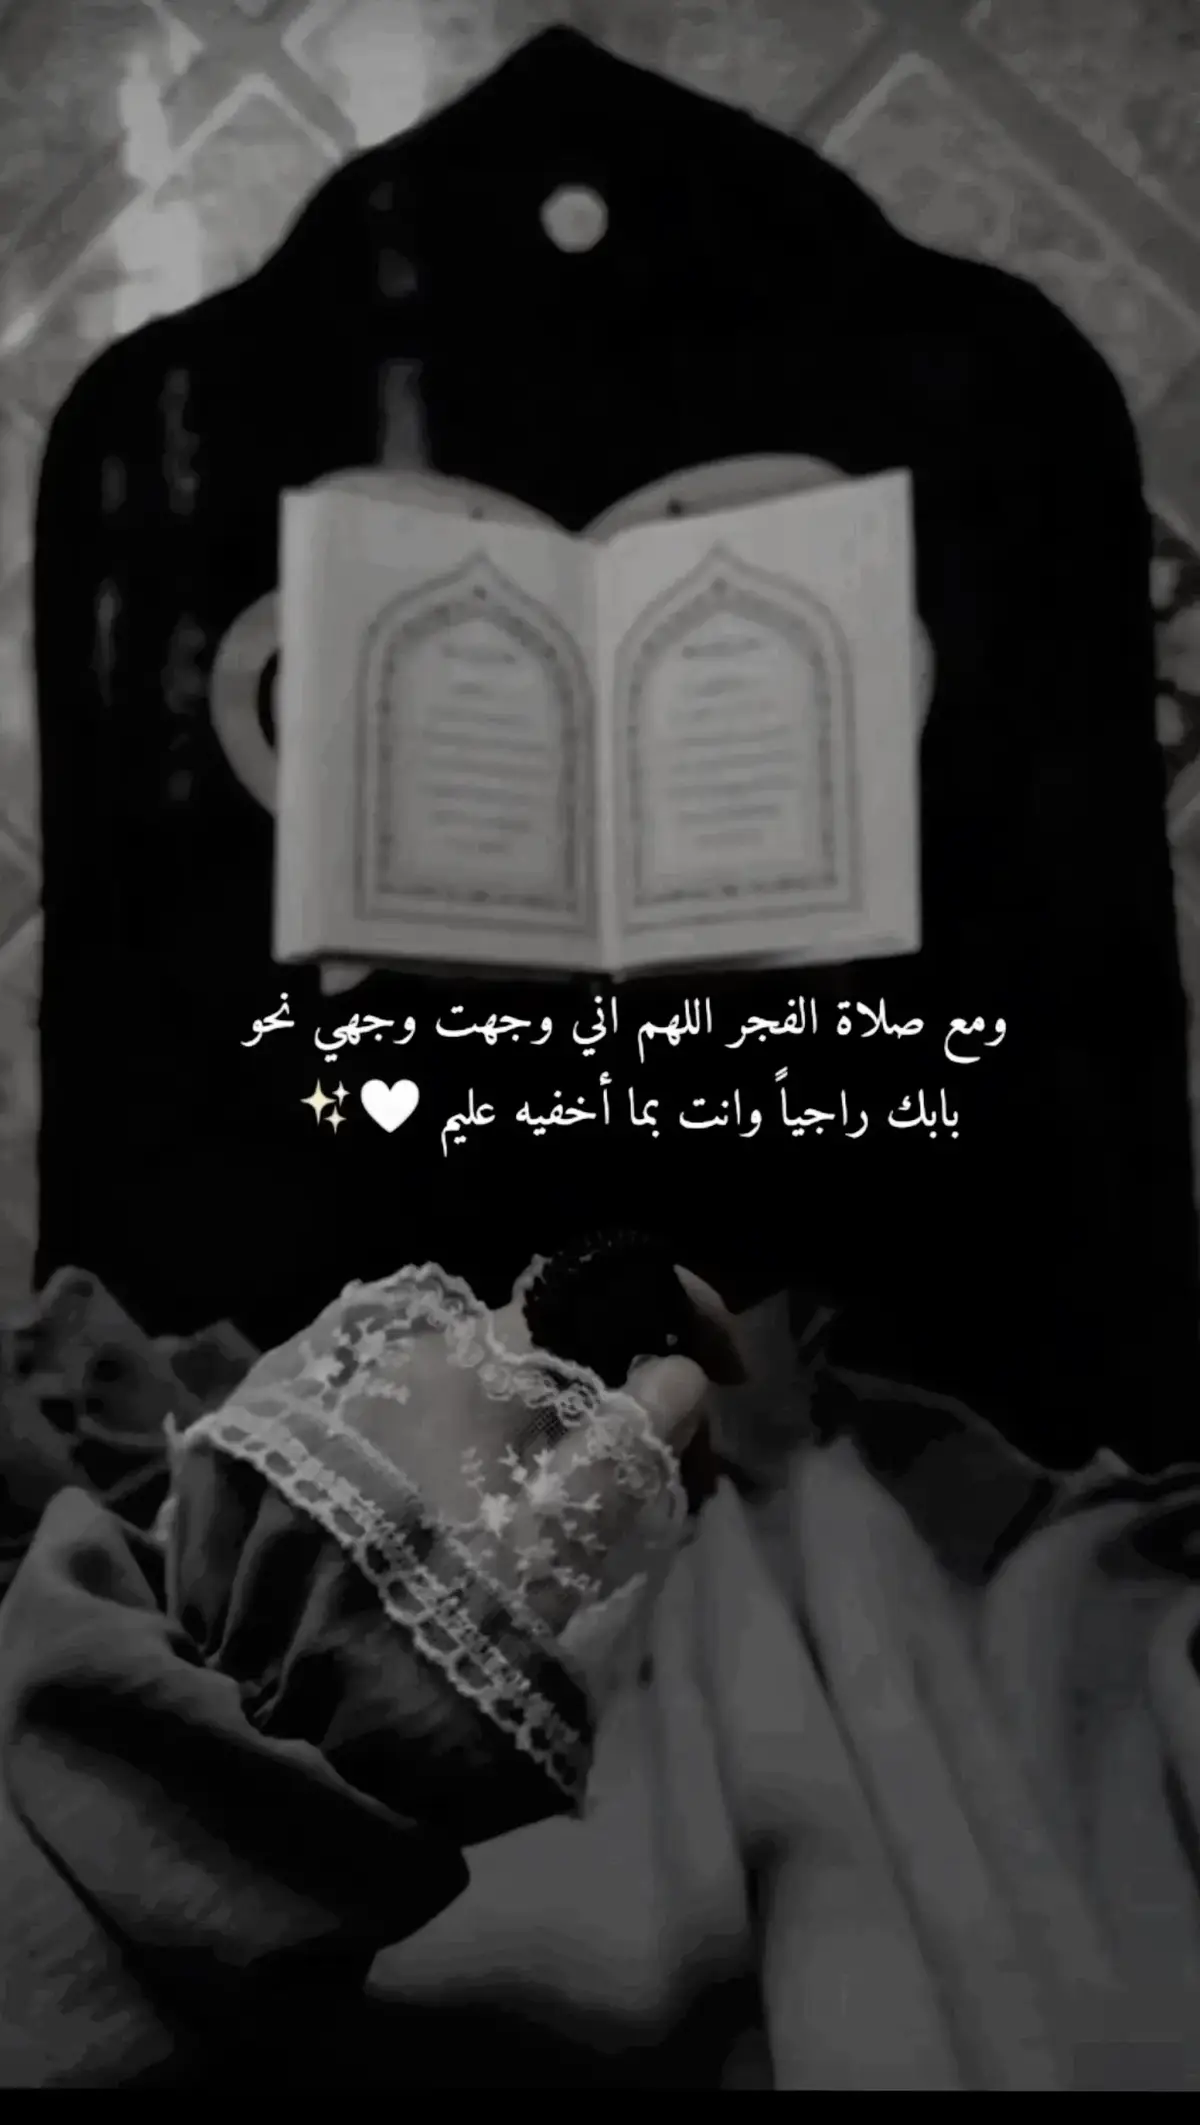 ومع صلاة الفجر اللهم اني وجهت وجهي نحو
بابك راجياً وانت بما أخفيه عليم 🤍✨